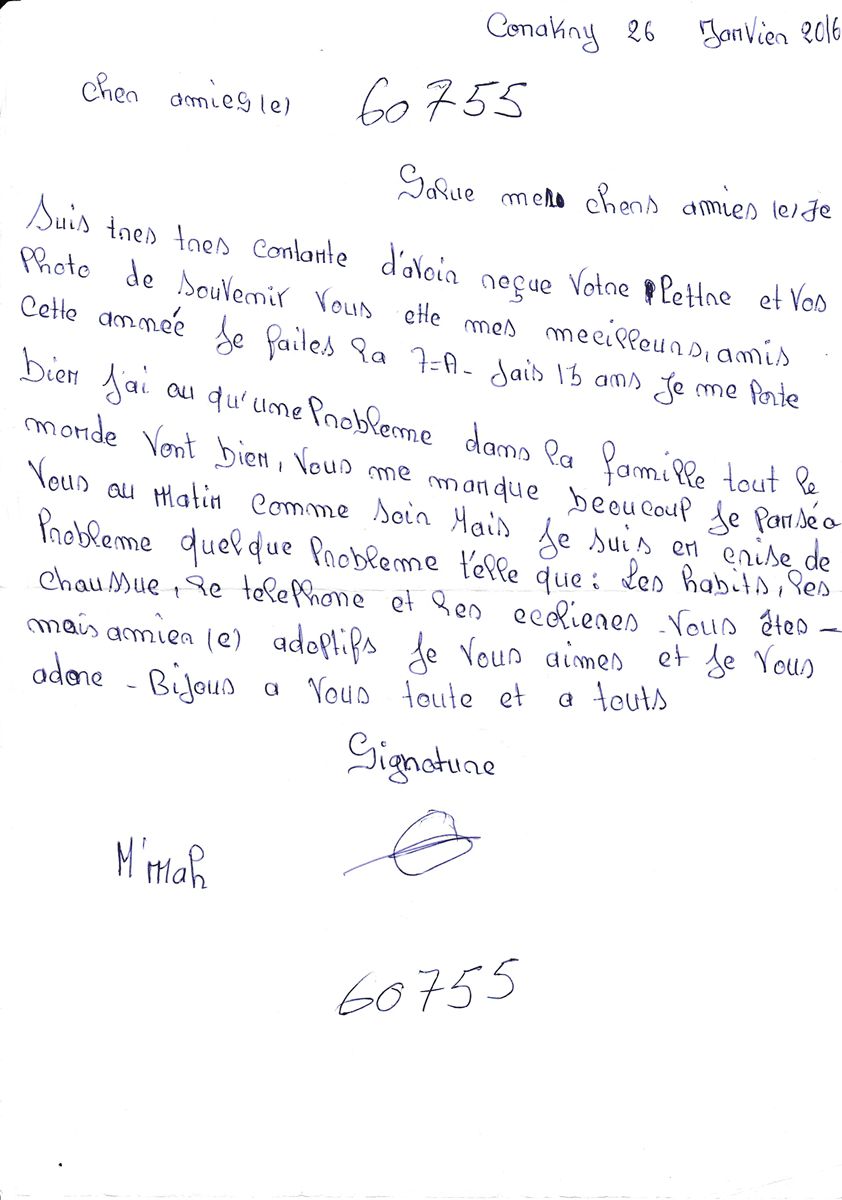 Conakry 26 Janvier 2016
cher amies(e) 60755
Salue mers chers amies(e) Je
Suis tres tres contante d'avoir reçue votre Lettre et vos
Photo de souvernir vous ette mes meceilleurs, amis
Cette année Je failes la 7=A- Jais 13 ans Je me Porte
bien J'ai au qu'une Probleme dans la famille tout le
monde vont bien, vous me manque beeucoup Je Parsé a
vous au matin comme soir Mais Je suis en crise de
Probleme quelque Probleme t'elle que: Les habits, les
chaussue, le telephone et les ecolieres - vous êtes -
meis amier(e) adoptifs Je vous aimes et Je vous
adore - Bijous a vous toute et a touts
Signature
M'mah
60755